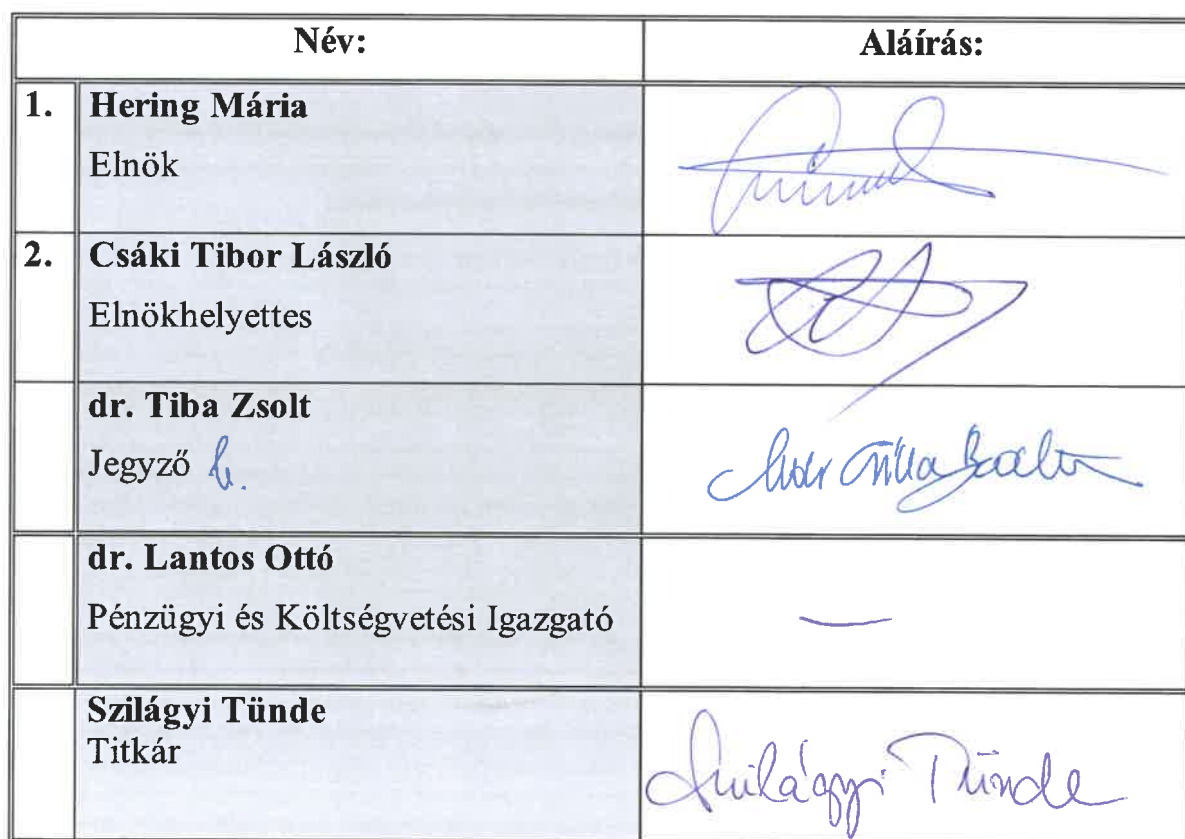 Név: Aláírás:
1. Hering Mária
Elnök
2. Csáki Tibor László
Elnökhelyettes
dr. Tiba Zsolt
Jegyző h.
dr. Lantos Ottó
Pénzügyi és Költségvetési Igazgató —
Szilágyi Tünde
Titkár
Szilágyi Tünde